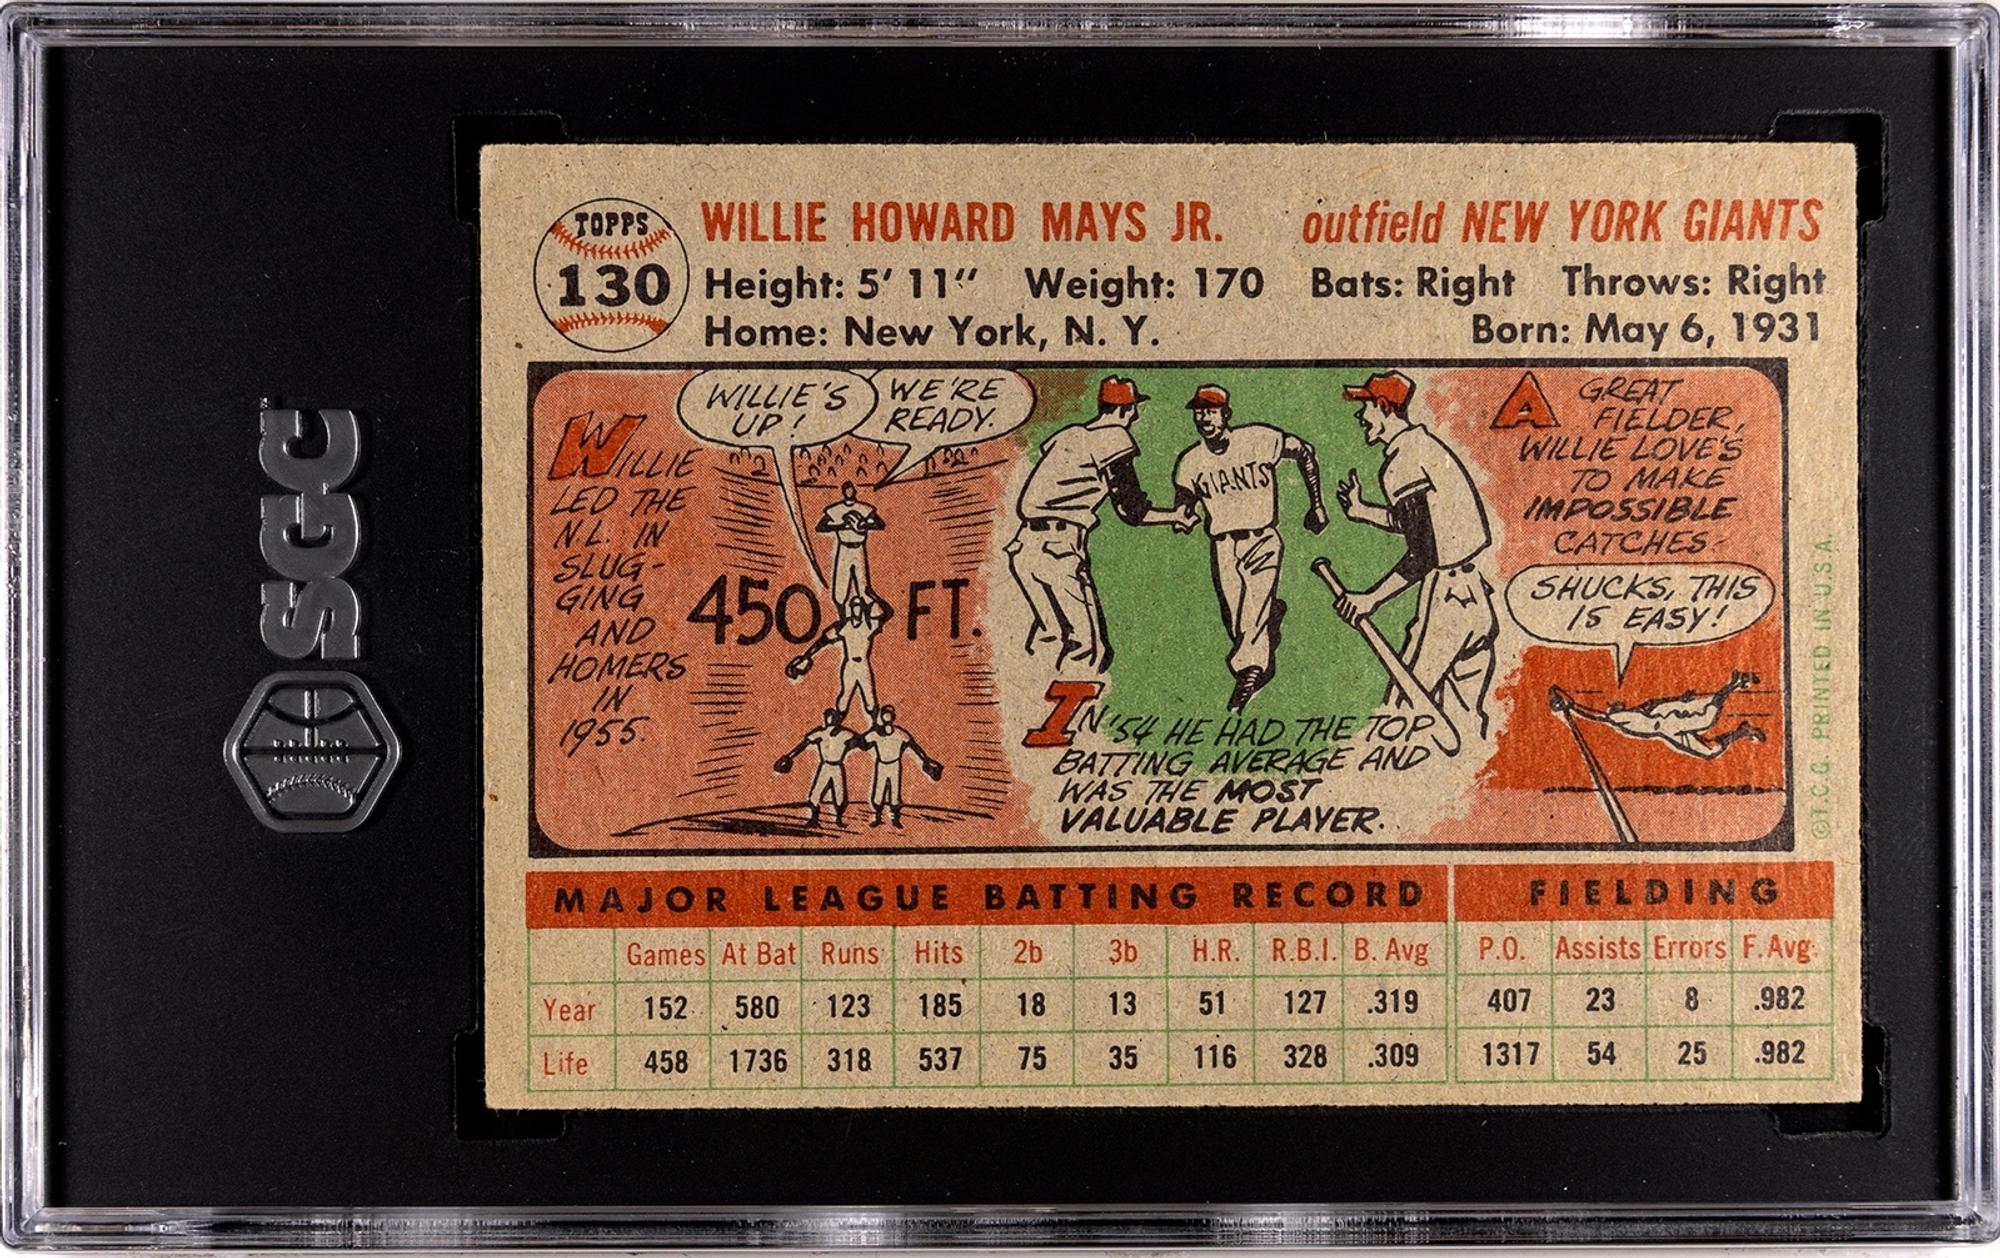 SGC
TOPPS
130
WILLIE HOWARD MAYS JR. outfield NEW YORK GIANTS
Height: 5' 11" Weight: 170 Bats: Right Throws: Right
Home: New York, N. Y. Born: May 6, 1931
WILLIE
LED THE
N.L. IN
SLUG-
GING
AND
HOMERS
IN
1955.
WILLIE'S
UP!
WE'RE
READY.
450 FT.
GIANTS
IN '54 HE HAD THE TOP
BATTING AVERAGE AND
WAS THE MOST
VALUABLE PLAYER.
A GREAT
FIELDER,
WILLIE LOVE'S
TO MAKE
IMPOSSIBLE
CATCHES.
SHUCKS, THIS
IS EASY!
©T.C.G. PRINTED IN U.S.A.
MAJOR LEAGUE BATTING RECORD FIELDING
Games At Bat Runs Hits 2b 3b H.R. R.B.I. B. Avg P.O. Assists Errors F.Avg.
Year 152 580 123 185 18 13 51 127 .319 407 23 8 .982
Life 458 1736 318 537 75 35 116 328 .309 1317 54 25 .982